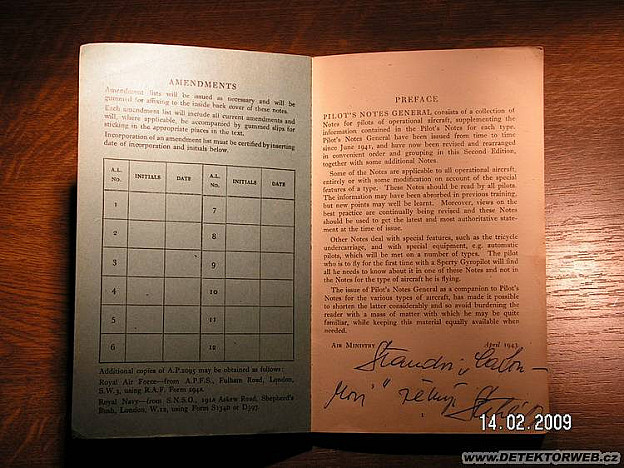 AMENDMENTS
Amendment lists will be issued as necessary and will be
gummed for affixing to the inside back cover of these notes.
Each amendment list will include all current amendments and
will, where applicable, be accompanied by gummed slips for
sticking in the appropriate places in the text.
Incorporation of an amendment list must be certified by inserting
date of incorporation and initials below.
A.L. No. INITIALS DATE A.L. No. INITIALS DATE
1 7
2 8
3 9
4 10
5 11
6 12
Additional copies of A.P.2095 may be obtained as follows:
Royal Air Force—from A.P.F.S., Fulham Road, London,
S.W.3, using R.A.F. Form 294A.
Royal Navy—from S.N.S.O., 191A Askew Road, Shepherd's
Bush, London, W.12, using Form S1340 or D397
PREFACE
PILOT'S NOTES GENERAL consists of a collection of
Notes for pilots of operational aircraft, supplementing the
information contained in the Pilot's Notes for each type.
Pilot's Notes General have been issued from time to time
since June 1941, and have now been revised and rearranged
in convenient order and grouping in this Second Edition,
together with some additional Notes.
Some of the Notes are applicable to all operational aircraft,
entirely or with some modification on account of the special
features of a type. These Notes should be read by all pilots.
The information may have been absorbed in previous training,
but new points may well be learnt. Moreover, views on the
best practice are continually being revised and these Notes
should be used to get the latest and most authoritative state-
ment at the time of issue.
Other Notes deal with special features, such as the tricycle
undercarriage, and with special equipment, e.g. automatic
pilots, which will be met on a number of types. The pilot
who is to fly for the first time with a Sperry Gyropilot will find
all he needs to know about it in one of these Notes and not in
the Notes for the type of aircraft he is flying.
The issue of Pilot's Notes General as a companion to Pilot's
Notes for the various types of aircraft, has made it possible to
shorten the latter considerably and so avoid burdening the
reader with a mass of matter with which he may be quite
familiar, while keeping this material equally available when
needed.
AIR MINISTRY April 1943
1
14.02.2009
WWW.DETEKTORWEB.CZ